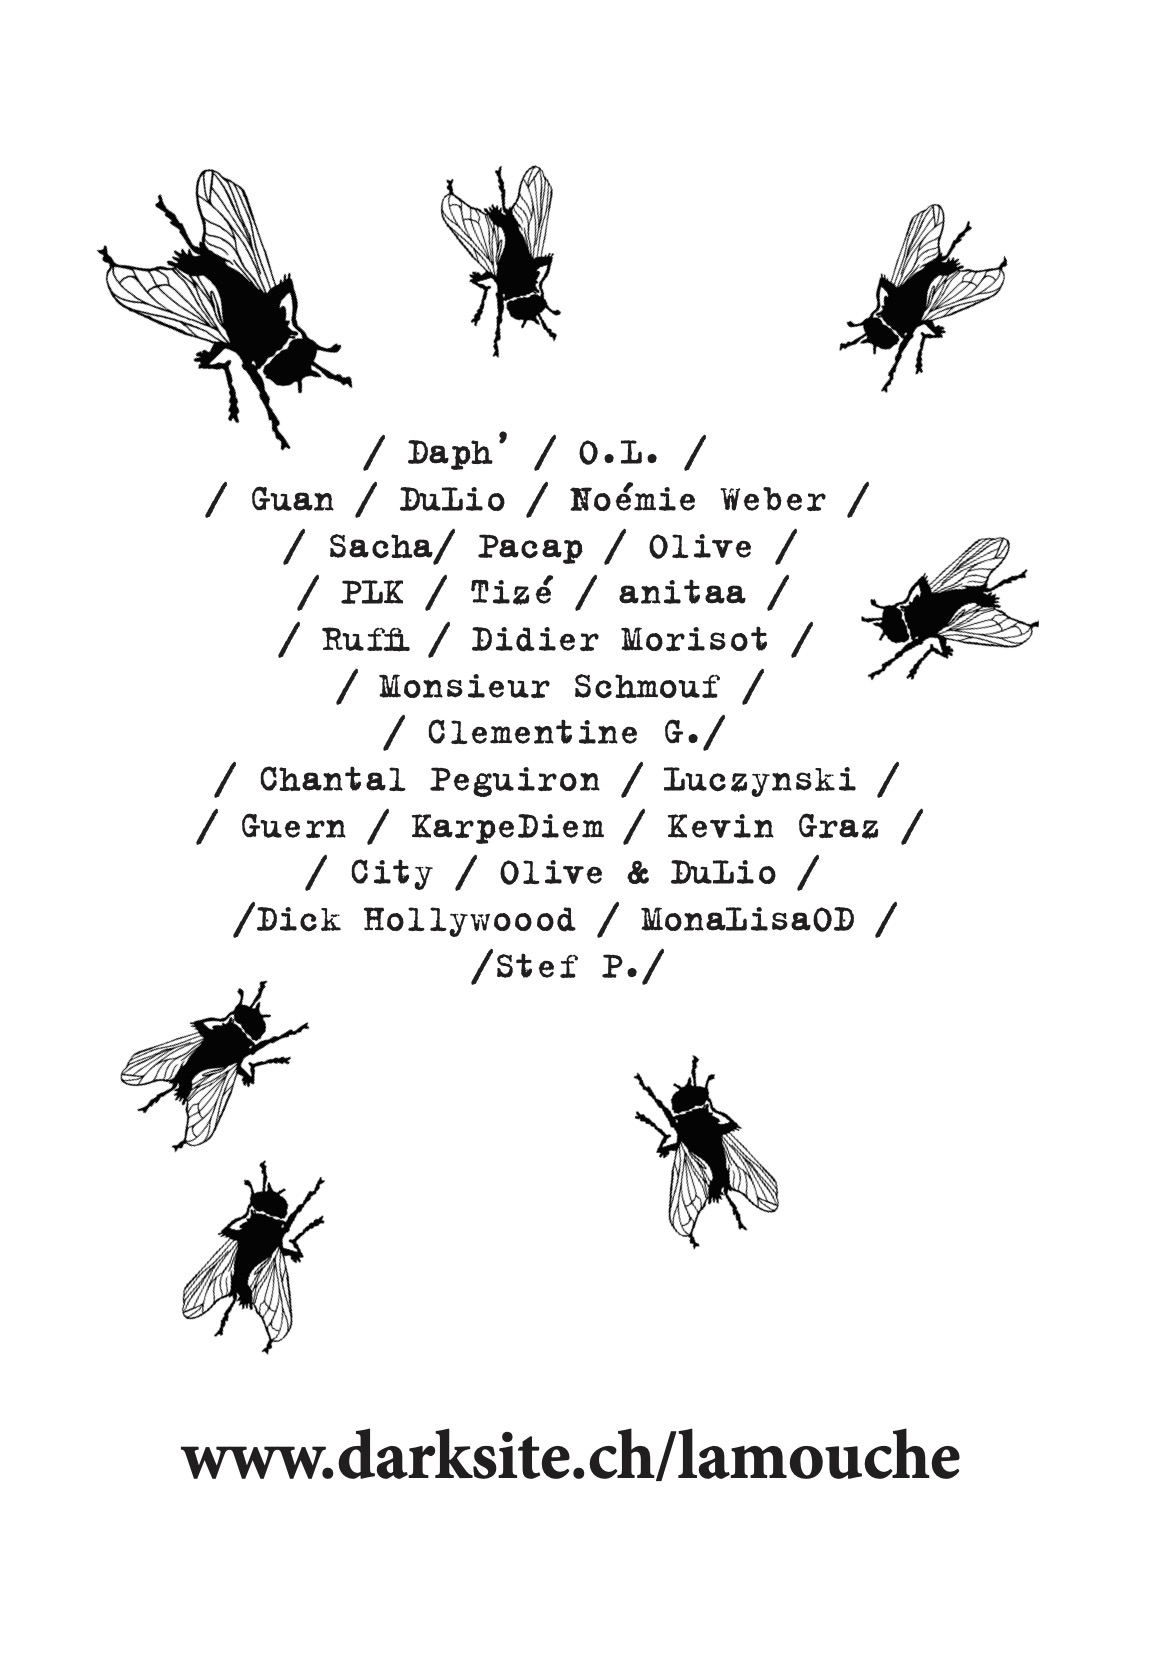 / Daph’ / O.L. /
/ Guan / DuLio / Noémie Weber /
/ Sacha/ Pacap / Olive /
/ PLK / Tizé / anitaa /
/ Ruffi / Didier Morisot /
/ Monsieur Schmouf /
/ Clementine G./
/ Chantal Peguiron / Luczynski /
/ Guern / KarpeDiem / Kevin Graz /
/ City / Olive & DuLio /
/Dick Hollywoood / MonaLisaOD /
/Stef P./
www.darksite.ch/lamouche